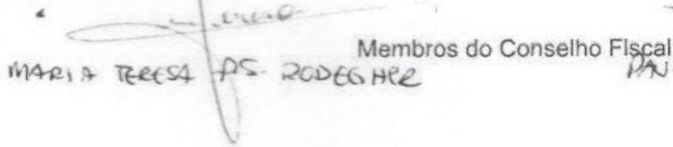 Membros do Conselho Fiscal
MARIA TERESA PS. RODEGHER